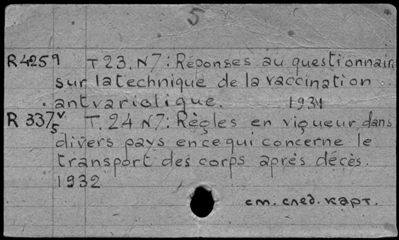 5
R 4259 T 23. N7: Réponses au questionnair
sur la technique de la vaccination
antvariolique. 1931
R 337/5 T. 24 N7: Règles en vigueur dans
divers pays en ce qui concerne le
transport des corps après décès.
1932
см. след. карт.